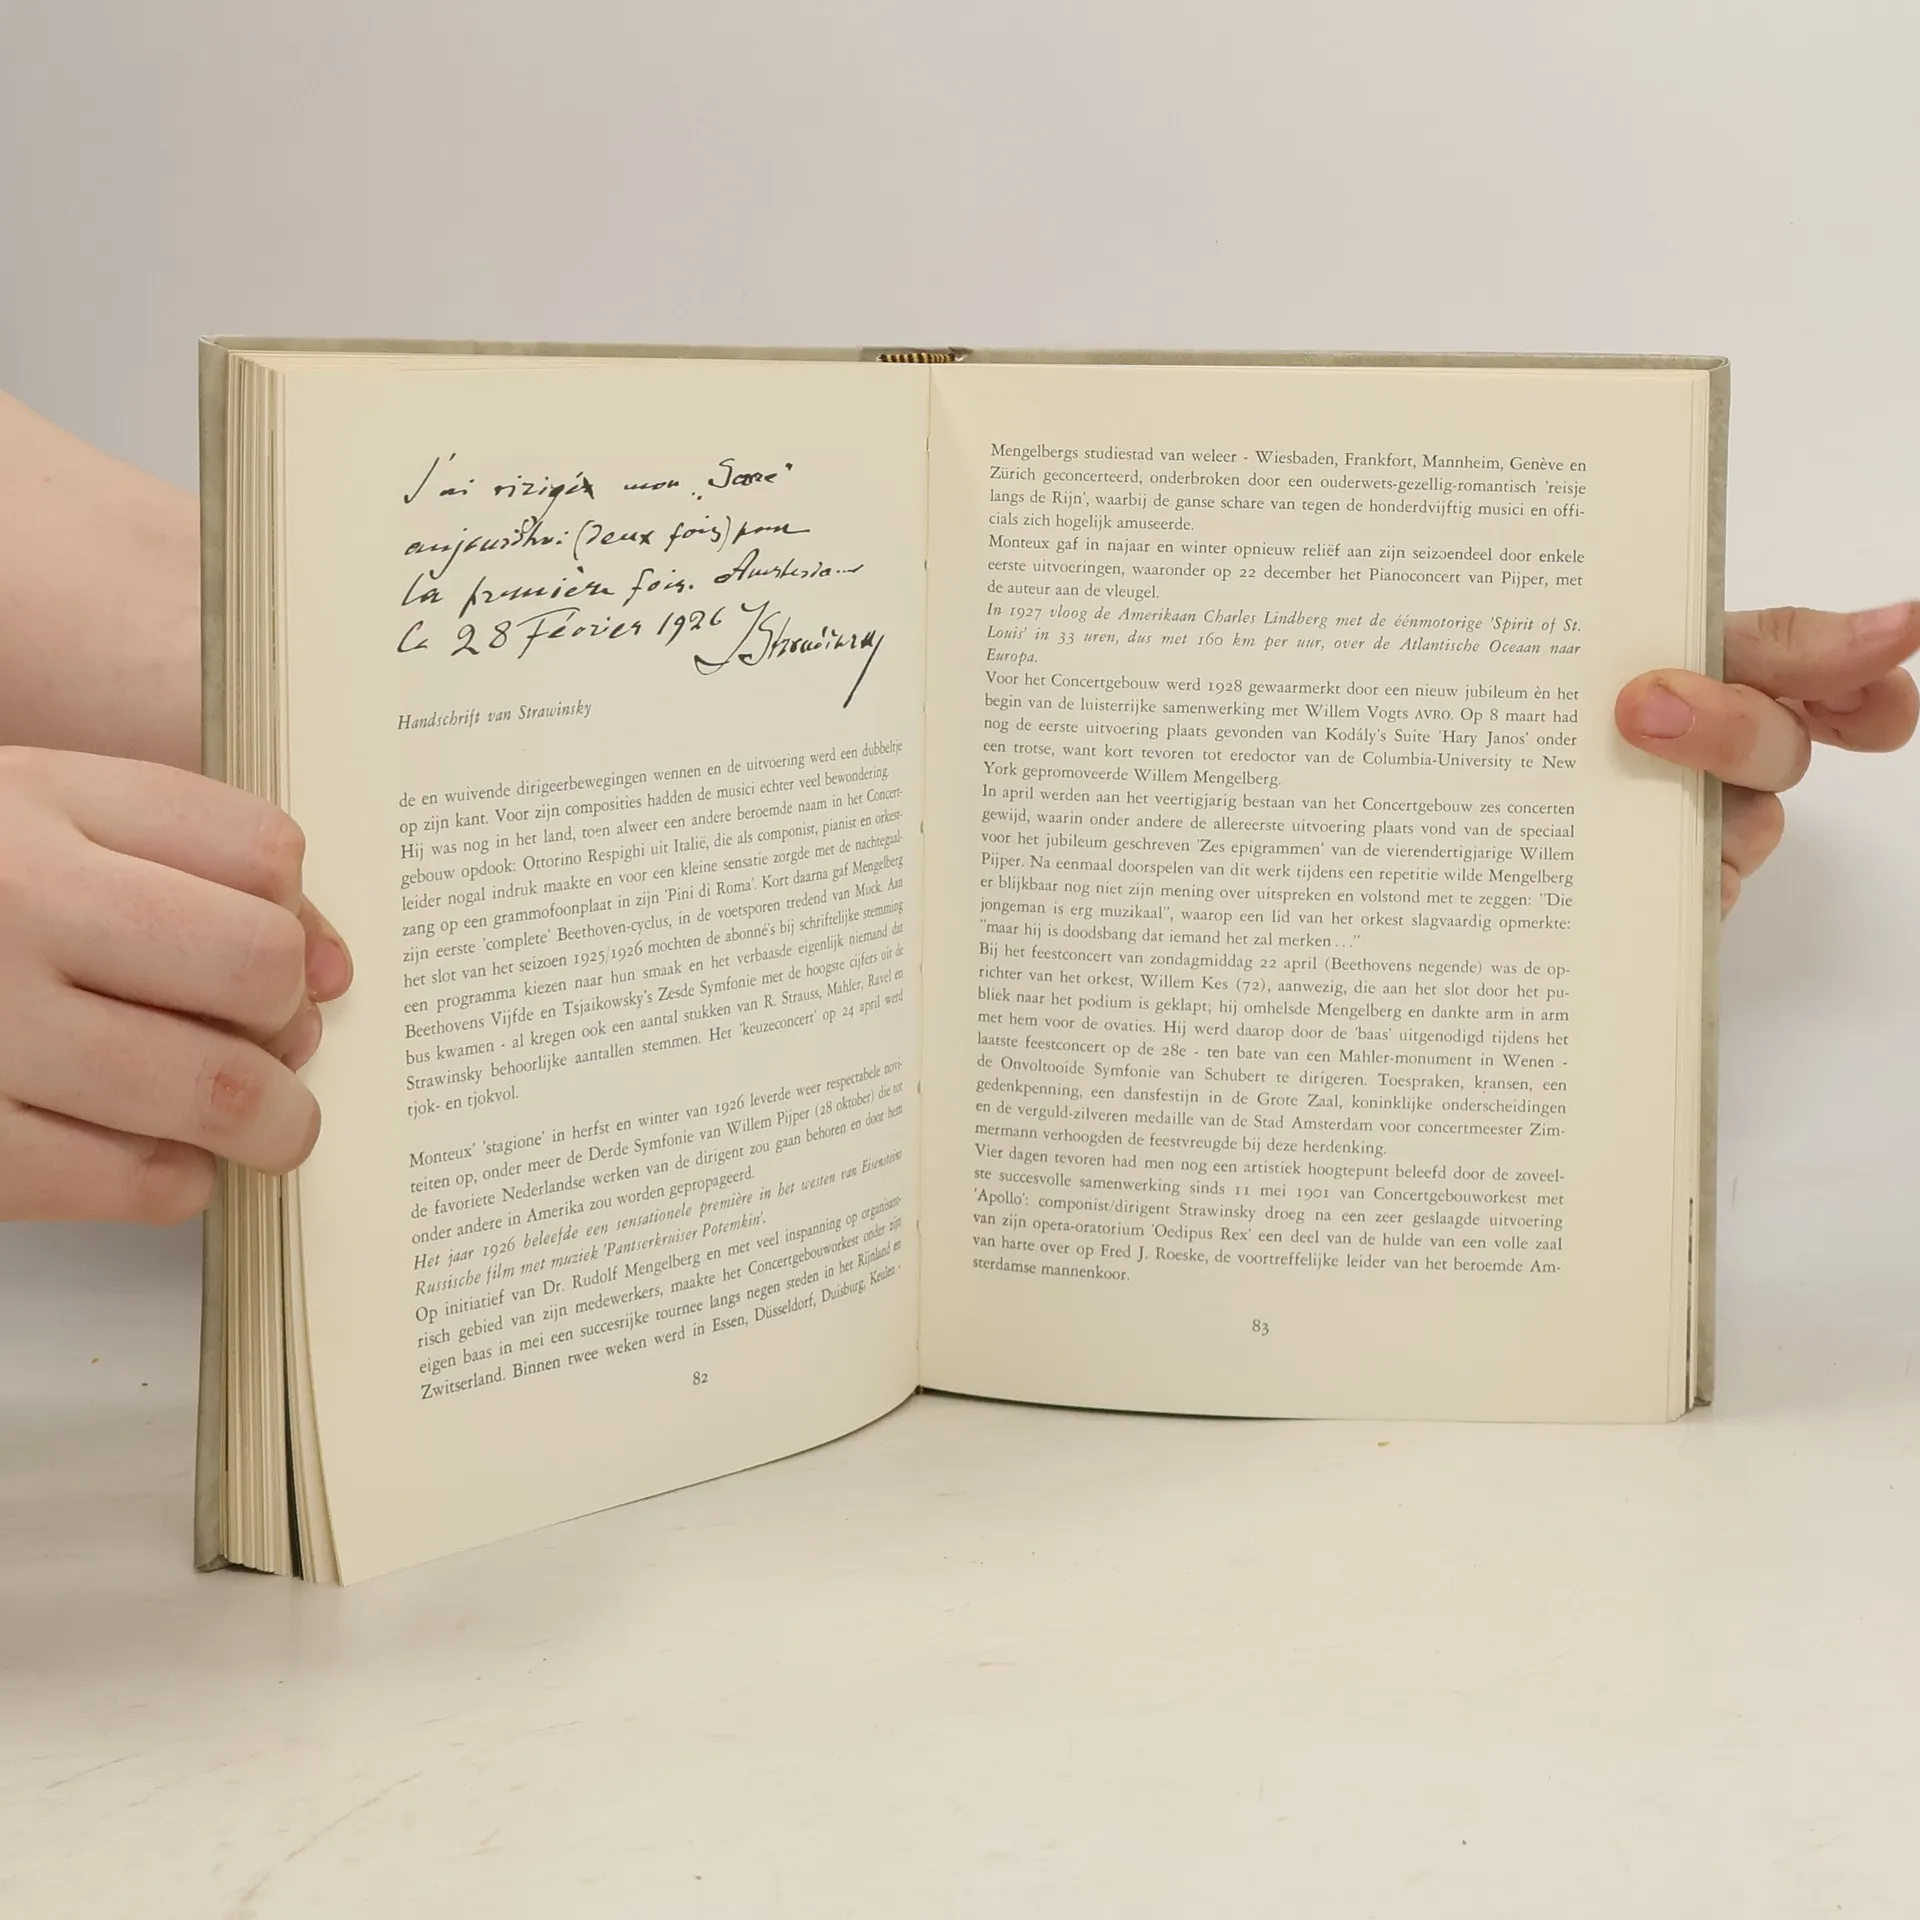 J'ai dirigée mon „Sacre"
aujourd'hui (deux fois) pour
la première fois. Amsterdam
le 28 Février 1926 IStrawinsky
Handschrift van Strawinsky
de en wuivende dirigeerbewegingen wennen en de uitvoering werd een dubbeltje
op zijn kant. Voor zijn composities hadden de musici echter veel bewondering.
Hij was nog in het land, toen alweer een andere beroemde naam in het Concert-
gebouw opdook: Ottorino Respighi uit Italië, die als componist, pianist en orkest-
leider nogal indruk maakte en voor een kleine sensatie zorgde met de nachtegaal-
zang op een grammofoonplaat in zijn 'Pini di Roma'. Kort daarna gaf Mengelberg
zijn eerste 'complete' Beethoven-cyclus, in de voetsporen tredend van Muck. Aan
het slot van het seizoen 1925/1926 mochten de abonné's bij schriftelijke stemming
een programma kiezen naar hun smaak en het verbaasde eigenlijk niemand dat
Beethovens Vijfde en Tsjaikowsky's Zesde Symfonie met de hoogste cijfers uit de
bus kwamen - al kregen ook een aantal stukken van R. Strauss, Mahler, Ravel en
Strawinsky behoorlijke aantallen stemmen. Het 'keuzeconcert' op 24 april werd
tjok- en tjokvol.
Monteux' 'stagione' in herfst en winter van 1926 leverde weer respectabele novi-
teiten op, onder meer de Derde Symfonie van Willem Pijper (28 oktober) die tot
de favoriete Nederlandse werken van de dirigent zou gaan behoren en door hem
onder andere in Amerika zou worden gepropageerd.
Het jaar 1926 beleefde een sensationele première in het westen van Eisensteins
Russische film met muziek 'Pantserkruiser Potemkin'.
Op initiatief van Dr. Rudolf Mengelberg en met veel inspanning op organisato-
risch gebied van zijn medewerkers, maakte het Concertgebouworkest onder zijn
eigen baas in mei een succesrijke tournee langs negen steden in het Rijnland en
Zwitserland. Binnen twee weken werd in Essen, Düsseldorf, Duisburg, Keulen -
82
Mengelbergs studiestad van weleer - Wiesbaden, Frankfort, Mannheim, Genève en
Zürich geconcerteerd, onderbroken door een ouderwets-gezellig-romantisch 'reisje
langs de Rijn', waarbij de ganse schare van tegen de honderdvijftig musici en offi-
cials zich hogelijk amuseerde.
Monteux gaf in najaar en winter opnieuw reliëf aan zijn seizoendeel door enkele
eerste uitvoeringen, waaronder op 22 december het Pianoconcert van Pijper, met
de auteur aan de vleugel.
In 1927 vloog de Amerikaan Charles Lindberg met de éénmotorige 'Spirit of St.
Louis' in 33 uren, dus met 160 km per uur, over de Atlantische Oceaan naar
Europa.
Voor het Concertgebouw werd 1928 gewaarmerkt door een nieuw jubileum èn het
begin van de luisterrijke samenwerking met Willem Vogts AVRO. Op 8 maart had
nog de eerste uitvoering plaats gevonden van Kodály's Suite 'Hary Janos' onder
een trotse, want kort tevoren tot eredoctor van de Columbia-University te New
York gepromoveerde Willem Mengelberg.
In april werden aan het veertigjarig bestaan van het Concertgebouw zes concerten
gewijd, waarin onder andere de allereerste uitvoering plaats vond van de speciaal
voor het jubileum geschreven 'Zes epigrammen' van de vierendertigjarige Willem
Pijper. Na eenmaal doorspelen van dit werk tijdens een repetitie wilde Mengelberg
er blijkbaar nog niet zijn mening over uitspreken en volstond met te zeggen: "Die
jongeman is erg muzikaal", waarop een lid van het orkest slagvaardig opmerkte:
"maar hij is doodsbang dat iemand het zal merken ..."
Bij het feestconcert van zondagmiddag 22 april (Beethovens negende) was de op-
richter van het orkest, Willem Kes (72), aanwezig, die aan het slot door het pu-
bliek naar het podium is geklapt; hij omhelsde Mengelberg en dankte arm in arm
met hem voor de ovaties. Hij werd daarop door de 'baas' uitgenodigd tijdens het
laatste feestconcert op de 28e - ten bate van een Mahler-monument in Wenen -
de Onvoltooide Symfonie van Schubert te dirigeren. Toespraken, kransen, een
gedenkpenning, een dansfestijn in de Grote Zaal, koninklijke onderscheidingen
en de verguld-zilveren medaille van de Stad Amsterdam voor concertmeester Zim-
mermann verhoogden de feestvreugde bij deze herdenking.
Vier dagen tevoren had men nog een artistiek hoogtepunt beleefd door de zoveel-
ste succesvolle samenwerking sinds 11 mei 1901 van Concertgebouworkest met
'Apollo': componist/dirigent Strawinsky droeg na een zeer geslaagde uitvoering
van zijn opera-oratorium 'Oedipus Rex' een deel van de hulde van een volle zaal
van harte over op Fred J. Roeske, de voortreffelijke leider van het beroemde Am-
sterdamse mannenkoor.
83